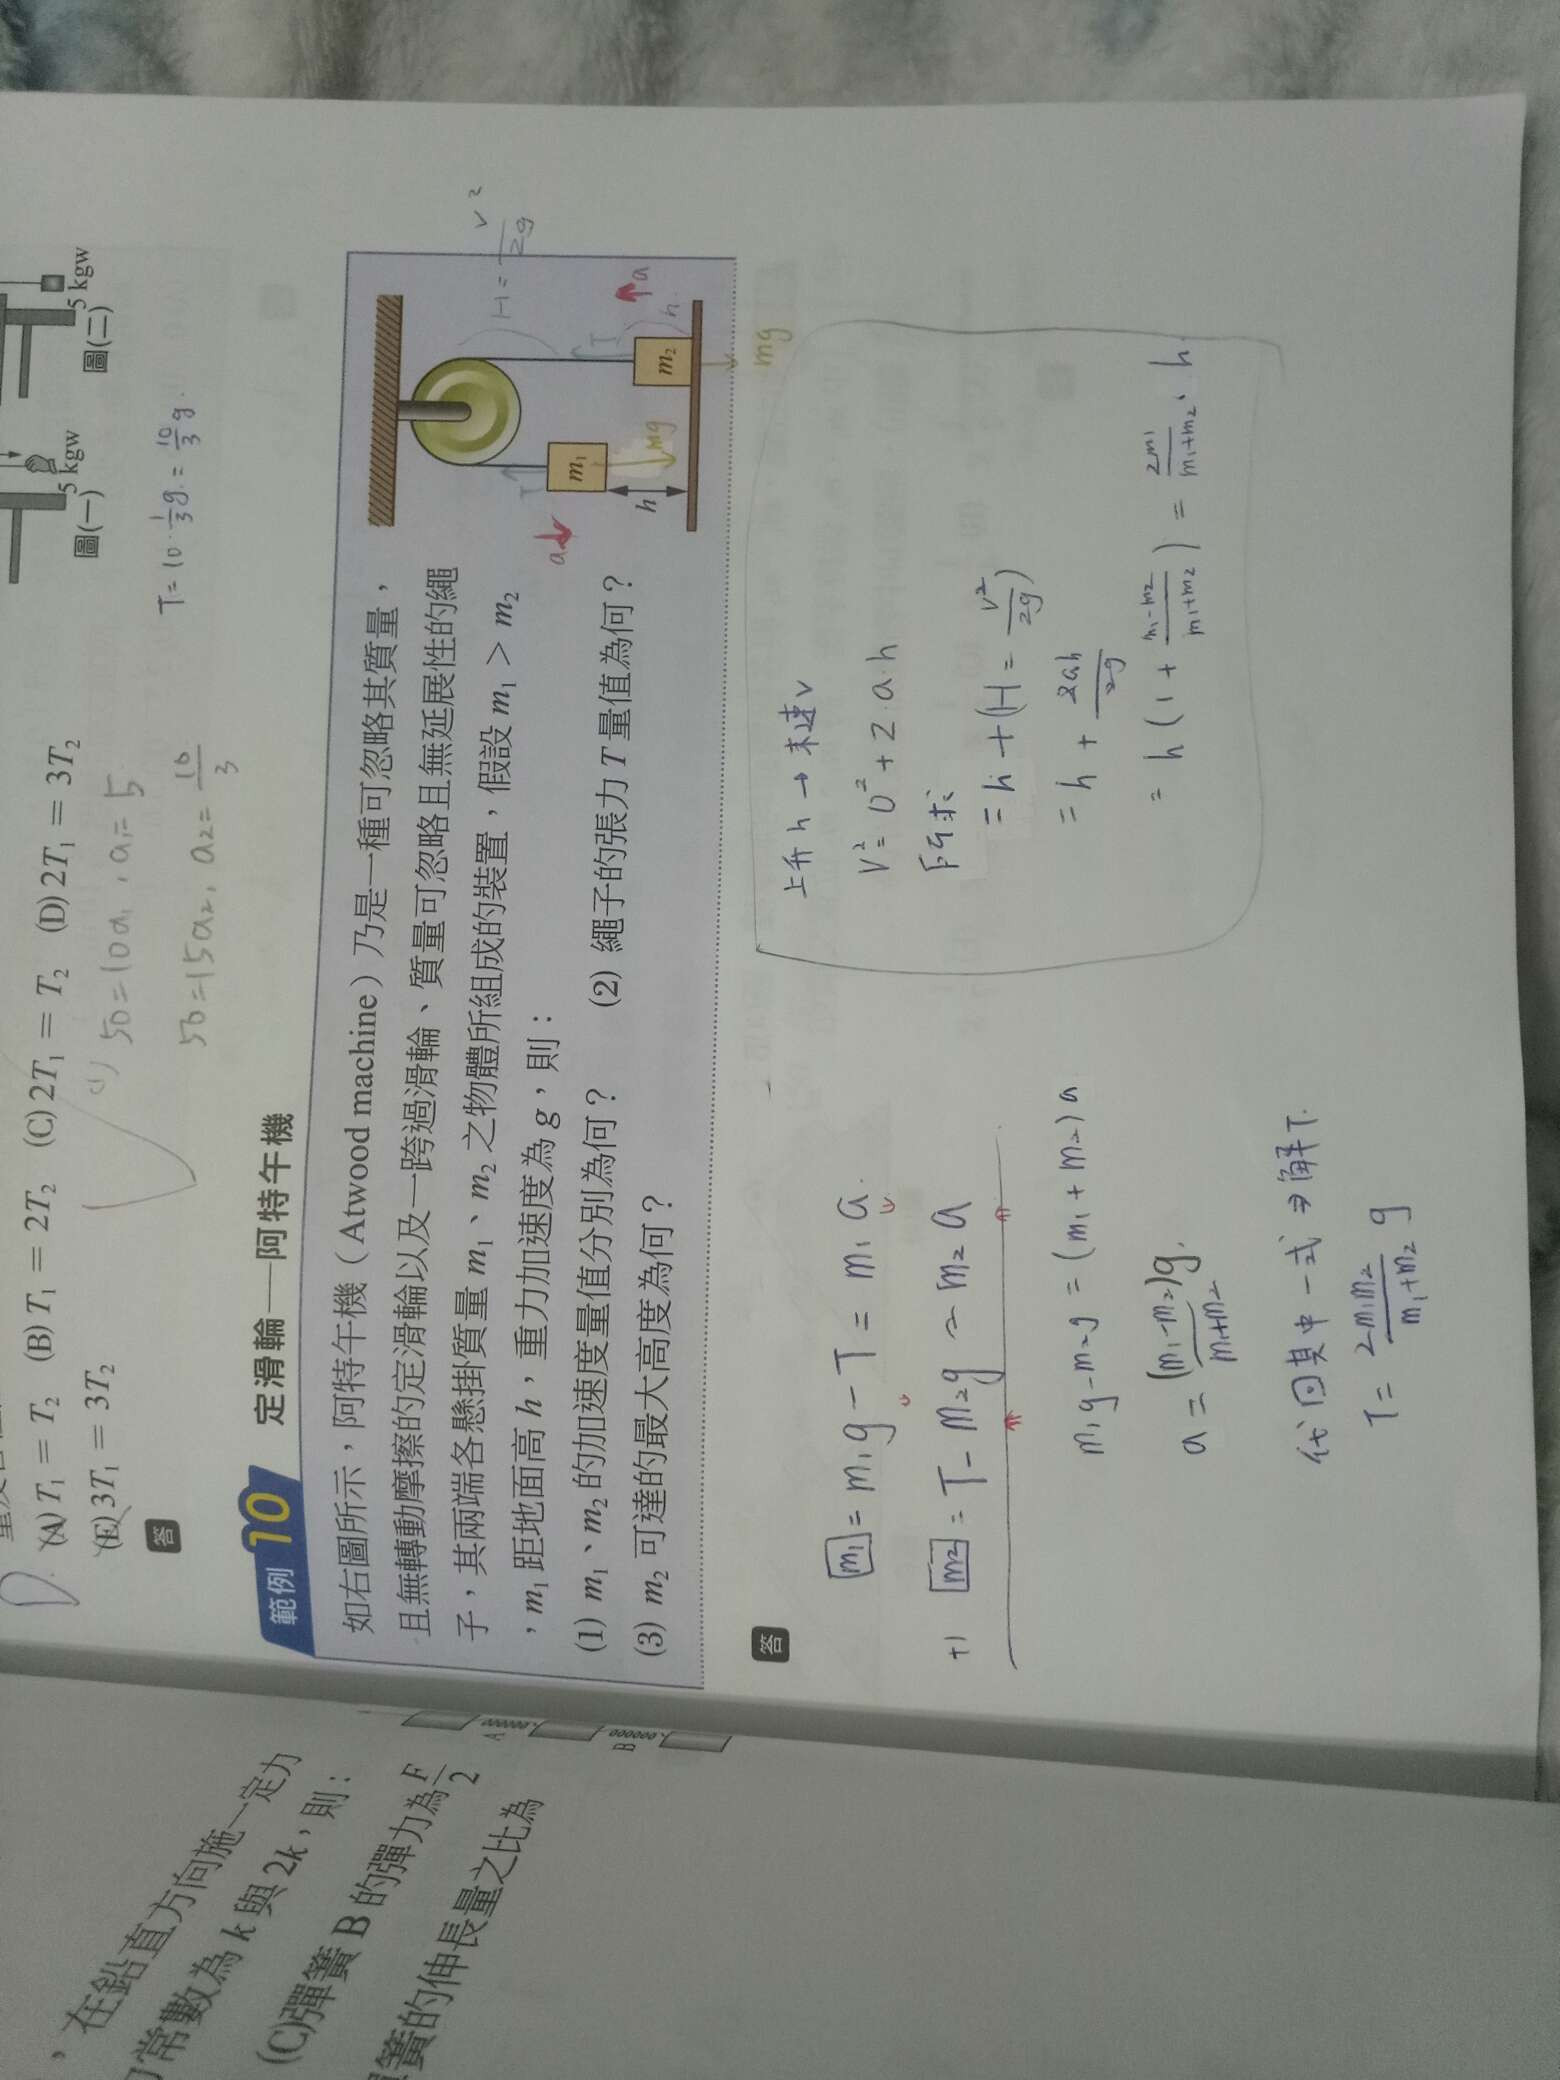 (A) T₁ = T₂ (B) T₁ = 2T₂ (C) 2T₁ = T₂ (D) 2T₁ = 3T₂
(E) 3T₁ = 3T₂
5 kgw
圖(一)
5 kgw
圖(二)
答
(1) 50=10a₁, a₁=5
50=15a₂, a₂=10/3
T=10·1/3g=10/3g.
範例 10 定滑輪─阿特午機
如右圖所示，阿特午機（Atwood machine）乃是一種可忽略其質量，
且無轉動摩擦的定滑輪以及一跨過滑輪、質量可忽略且無延展性的繩
子，其兩端各懸掛質量 m₁、m₂ 之物體所組成的裝置，假設 m₁ > m₂
，m₁ 距地面高 h，重力加速度為 g，則：
(1) m₁、m₂ 的加速度量值分別為何？ (2) 繩子的張力 T 量值為何？
(3) m₂ 可達的最大高度為何？
H=v²/2g
T
T
m₁
m₂
h
h
a
a
mg
mg
答
m₁ = m₁g - T = m₁a
+) m₂ = T - m₂g = m₂a
m₁g-m₂g=(m₁+m₂)a
a=(m₁-m₂)g/m₁+m₂
代回其中一式⇒解T.
T=2m₁m₂/m₁+m₂ g
上升h→末速v
V²=0²+2·a·h
所求
=h+(H=v²/2g)
=h+2ah/2g
=h(1+m₁-m₂/m₁+m₂)=2m₁/m₁+m₂·h
，在鉛直方向施一定力
力常數為 k 與 2k，則：
(C)彈簧 B 的彈力為 F/2
簧的伸長量之比為
A
B